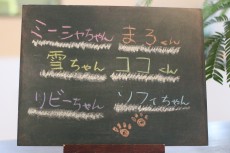 ミーシャちゃん まろくん
雪ちゃん ココくん
リビーちゃん ソフィちゃん